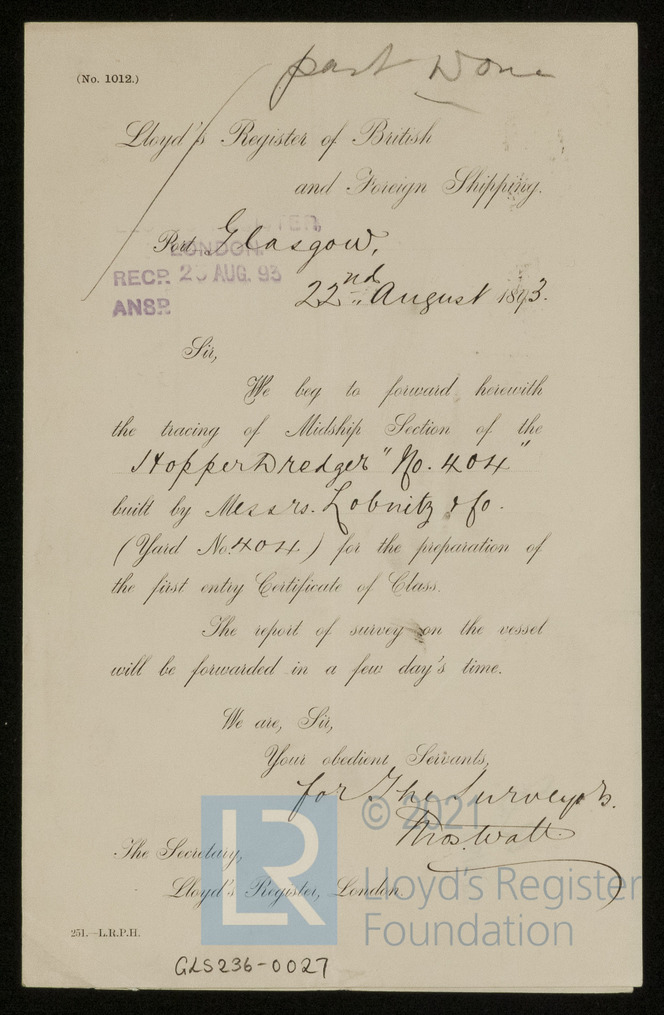 (No. 1012.)
past Done
Lloyd's Register of British
and Foreign Shipping.
Port, Glasgow,
LONDON.
RECD. 23 AUG. 93
ANSD.
22nd August 1893.
Sir,
We beg to forward herewith
the tracing of Midship Section of the
Hopper Dredger "No. 404"
built by Messrs. Lobnitz & Co.
(Yard No. 404) for the preparation of
the first entry Certificate of Class.
The report of survey on the vessel
will be forwarded in a few day's time.
We are, Sir,
Your obedient Servants,
for The Surveyors.
Thos. Watt
The Secretary,
Lloyd's Register, London.
251.—L.R.P.H.
GLS236-0027
LR
© 2021
Lloyd's Register
Foundation